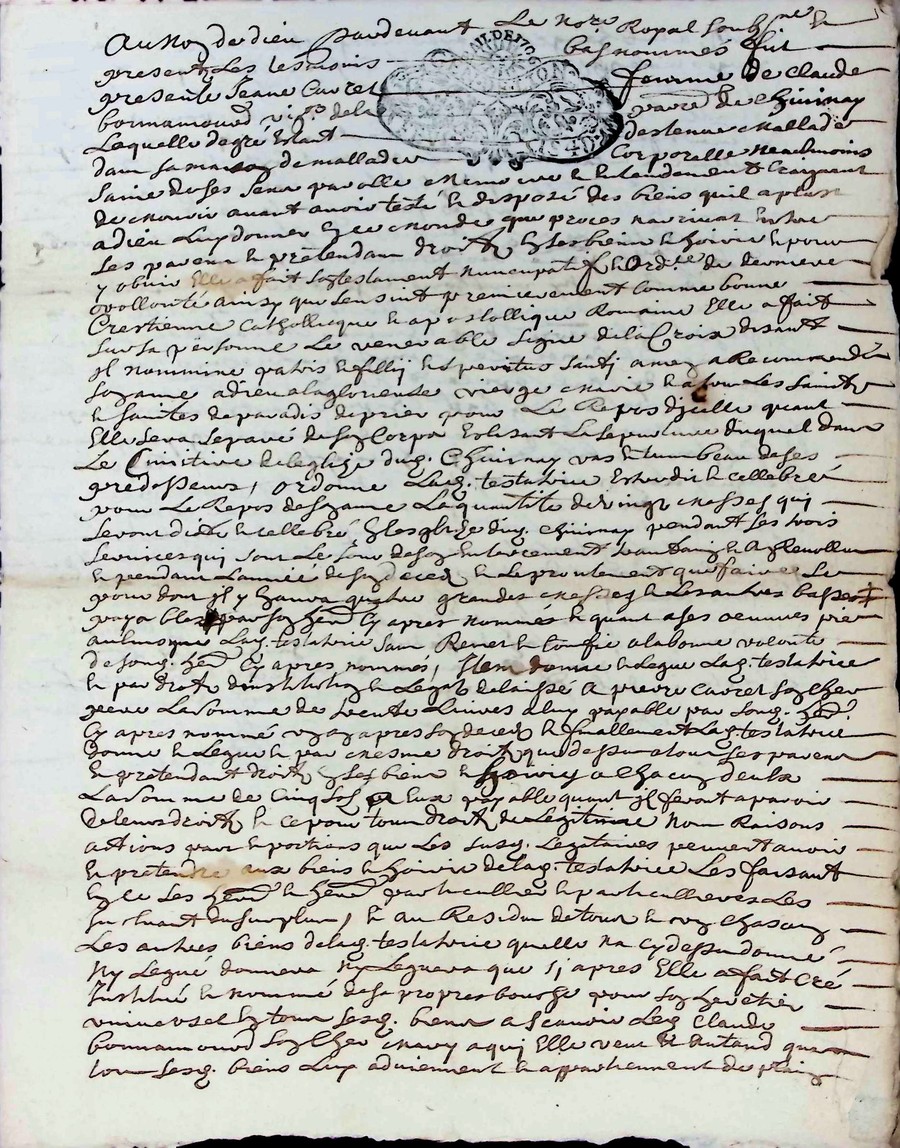 Au Nom de dieu pardevant Le nore Royal soubsne &
bas nommés fut
presents Les tesmoins
presente Jeane Curret femme de Claude
bonnamourd vigon de la parre de Chirinay
Laquelle de gré Estant destenue Mallade
dans sa maison de malladie Corporelle neanlmoins
saine de ses sens parolle memoire & Entendement Craignant
de mourir avant avoir testé & disposé des biens quil a plust
a dieu Luy donner En ce monde que proces narrivat Entre
Les parents & pretendans droits En ses biens & hoirie & pour
y obvier Elle a fait son testament nuncupatif & Ordre de derniere
vollonté ainsy que sensuit premierement Comme bonne
Crestienne Catholicque & apostollique Romaine Elle a fait
sur sa personne Le venerable signe de la Croix disant
In nommine patris & fillij & spiritus santj amen a Recommendé
son ame a dieu a la glorieuse vierge marie & a tous Les saints
& saintes de paradis de prier pour Le Repos dicelle quant
Elle sera separé de son Corps Eslisant La sepulture duquel dans
Le Cimitiere de leglize dud. Chirinay vas & tumbeau de ses
predesseurs, Ordonne Lad. testatrice Estre dit & cellebré
pour Le Repos de son ame La quantité de vingt messes qui
seront dites & cellebré En leglize dud. Chirinay pendant Les trois
services qui sont Le jour de son Enterrement
& pendant Lannée de son deces & Le proutement que faire se
pourra dont Il y haura quatre grandes messes & Les autres basses
payables par son herr Cy apres nommés & quant a ses oeuvres pies
aulmosne Lad. testatrice sans Remet & confie a la bonne volonté
de sond. herr Cy apres nommés, Item donne & Legue Lad. testatrice
& par droit dinstitution & Legat delaissé A pierre Curret son cher
pere La somme de trente Livres a luy payable par sond. herr
Cy apres nommé un an apres son deces & finallement Lad. testatrice
donne & Legue & par mesme droit que dessus a tous ses parents
& pretendant droits En ses biens & hoirie a Chacun deulx
La somme de Cinq sols a Eux payable quant Il feront aparoir
de leurs droits & ce pour tous droits de Legitime Nom Raisons
actions part & portions que Les susd. Legitaires peuvent avoir
& pretendre aux biens & hoirie de lad. testatrice Les faisant
En ce ses herrs & herrs particulliers & particullieres Les
Excluant du surplus, & au Residu de tous & un Chascun
Les autres biens de lad. testatrice quelle na cy dessus donné
Ny Legué donnera Ny Leguera que sj apres Elle a fait Cré
Institué & nommé de sa propre bouche pour son heretier
universel En tous sesd. biens a scavoir Led. Claude
bonnamourd son cher mary a qui Elle veut & Entand que
tous sesd. biens Luy adviennent & appartiennent de plain